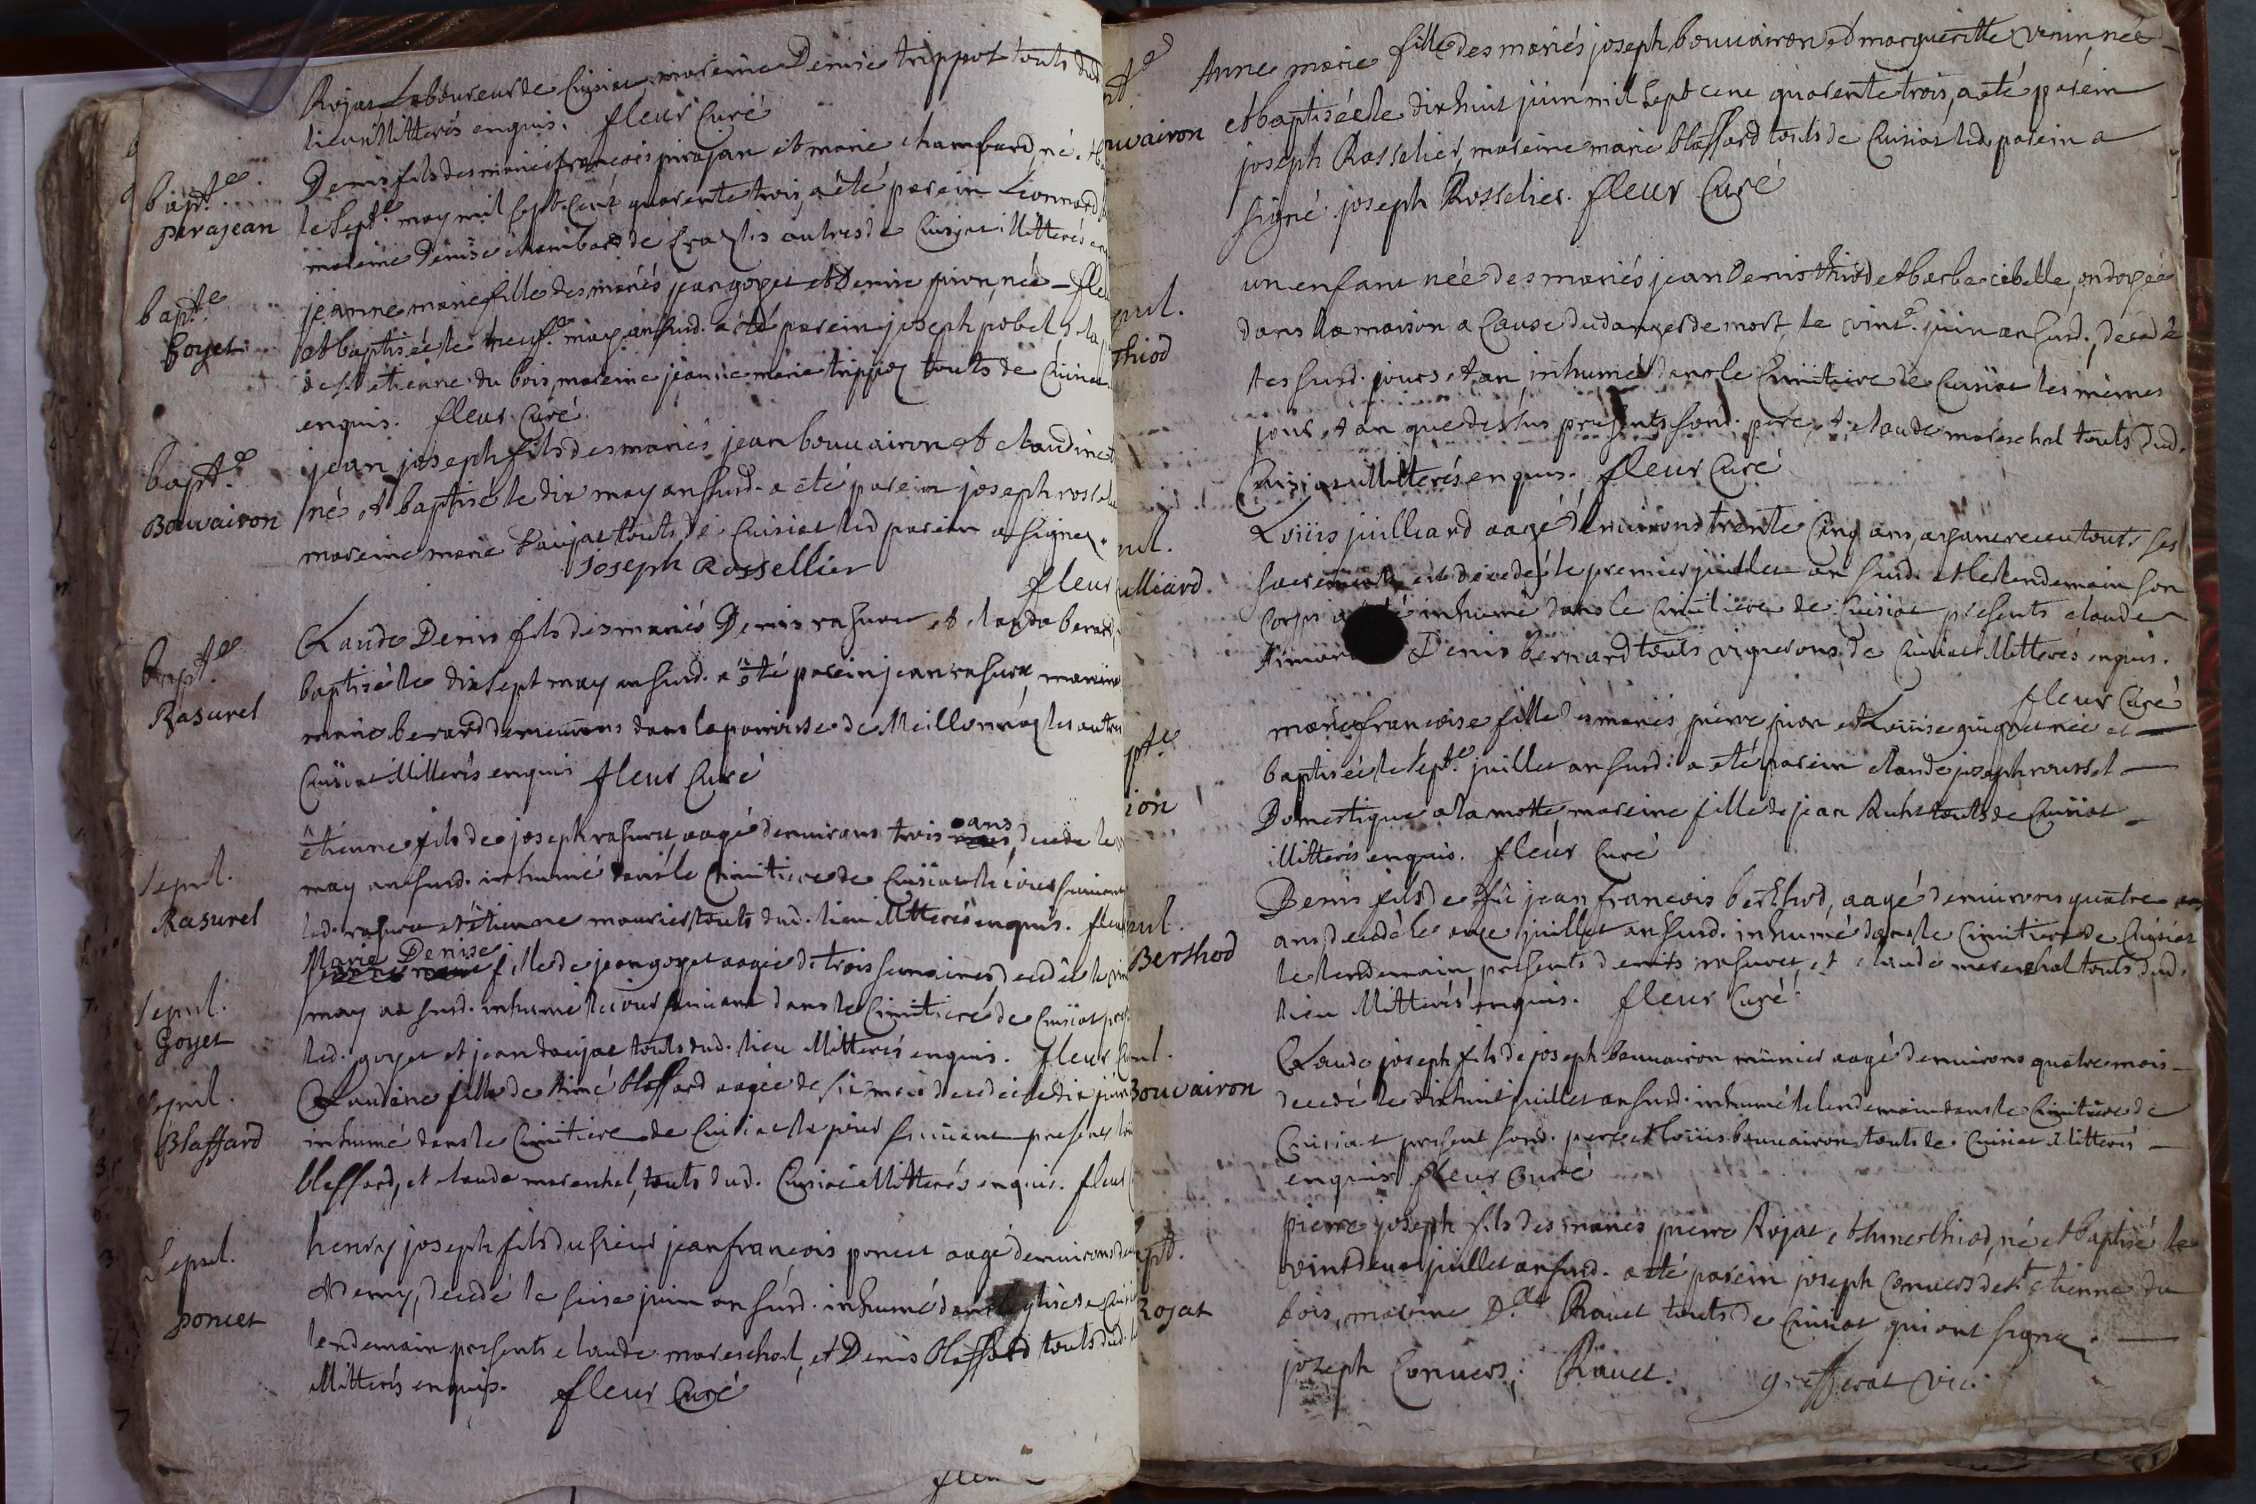 Rojat Laboureur de Cuisiat, mareine Denise trippot touts dud.
lieu illitterés enquis. fleur Curé
bapt.e
pirajean
Denis fils des mariés françois pirajan et marie chambard, né et
le sept.e may mil sept cent quarente trois, a été parein Leonnard
mareine Denise chambard de autres de Cuisiat illitterés
bapt.e
Goyet
jeanne marie fille des mariés jean goyet et Denise pion, née
et baptisée le neuf.e may an susd. a été parein joseph pobel
de s.t etienne du bois, mareine jeanne marie trippoz touts de Cuisiat
enquis. fleur Curé
bapt.e
Bouvairon
jean joseph fils des mariés jean bouvairon et claudine
né et baptisé le dix may an susd. a été parein joseph rossel
mareine marie Daujat touts de Cuisiat led parein a signez.
joseph Rossellier
fleur
bapt.e
Rasurel
Claude Denis fils des mariés Denis rasurel et clauda berard
baptisé le dix sept may an susd. a été parein jean rasurel, mareine
marie berard demeurans dans la parroisse de Meillonnaz les autres
Cuisiat illitterés enquis fleur Curé
sepul.
Rasurel
étienne fils de joseph rasurel, aagé d'environs trois ans, decedé le
may an susd. inhumé dans le Cimitiere de Cuisiat le jour suivant
led. rasurel et étienne mourier, touts dud. lieu illitterés enquis. fleur
sepul.
Goyet
Marie Denise
fille de jean goyet aagée de trois semaines, decedée le
may an susd. inhumé le jour suivant dans le Cimitiere de Cuisiat
led. goyet et jean daujat touts dud. lieu illitterés enquis. fleur
sepul.
Blaffard
Claudine fille de Aimé blaffard aagée de six mois decedée le dix juin
inhumé dans le Cimitiere de Cuisiat le jour suivant presents
blaffard, et claude mareschal, touts dud. Cuisiat illitterés enquis. fleur
Sepul.
poncet
henry joseph fils du sieur jean françois poncet aagé d'environs
et demy, decedé le seise juin an susd. inhumé dans l'eglise de
lendemain presents claude mareschal, et Denis blaffard touts dud.
illitterés enquis. fleur Curé
Anne marie fille des mariés joseph bouvairon et marguerite venin, née
et baptisée le dix huit juin mil sept cent quarente trois, a été parein
joseph Rosselier, mareine marie blaffard touts de Cuisiat led. parein a
signé. joseph Rosselier. fleur Curé
Thiod
un enfant née des mariés jean Denis thiod et barbe cibelle, ondoyée
dans la maison a Cause du danger de mort, le vint.e juin an susd., decedé
les susd. jours et an, inhumé dans le Cimitiere de Cuisiat les mêmes
jour, et an que dessus presents sond. pere, et claude mareschal touts dud.
Cuisiat illitterés enquis. fleur Curé
Loüis juilliard aagé d'environs trente Cinq ans, ayant receu touts ses
sacrements est decedé le premier juillet an susd. et le lendemain son
Corps inhumé dans le Cimitiere de Cuisiat presents claude
Denis bernard touts vignerons de Cuisiat illitterés enquis.
fleur Curé
marie françoise fille des mariés pierre pion et Loüise guignet née et
baptisée le sept.e juillet an susd: a été parein claude joseph roussel
Domestique a la motte mareine fille de jean touts de Cuisiat
illitterés enquis. fleur Curé
Berthod
Denis fils de fû jean françois berthod, aagé d'environs quatre
ans, decedé le onze juillet an susd. inhumé dans le Cimitiere de Cuisiat
le lendemain, presents denis rasurel, et claude mareschal touts dud.
lieu illitterés enquis. fleur Curé
Bouvairon
Claude joseph fils de joseph bouvairon münier aagé d'environs quatre mois
decedé le dix huit juillet an susd. inhumé le lendemain dans le Cimitiere de
Cuisiat present sond. pere et loüis bouvairon touts de Cuisiat illitterés
enquis fleur Curé
Rojat
pierre joseph fils des mariés pierre Rojat et Anne thiod, né et baptisé le
vint deux juillet an susd. a été parein joseph Convers de s.t etienne du
bois, mareine D.lle Rouet touts de Cuisiat qui ont signez.
joseph Convers; Roüet. vic.